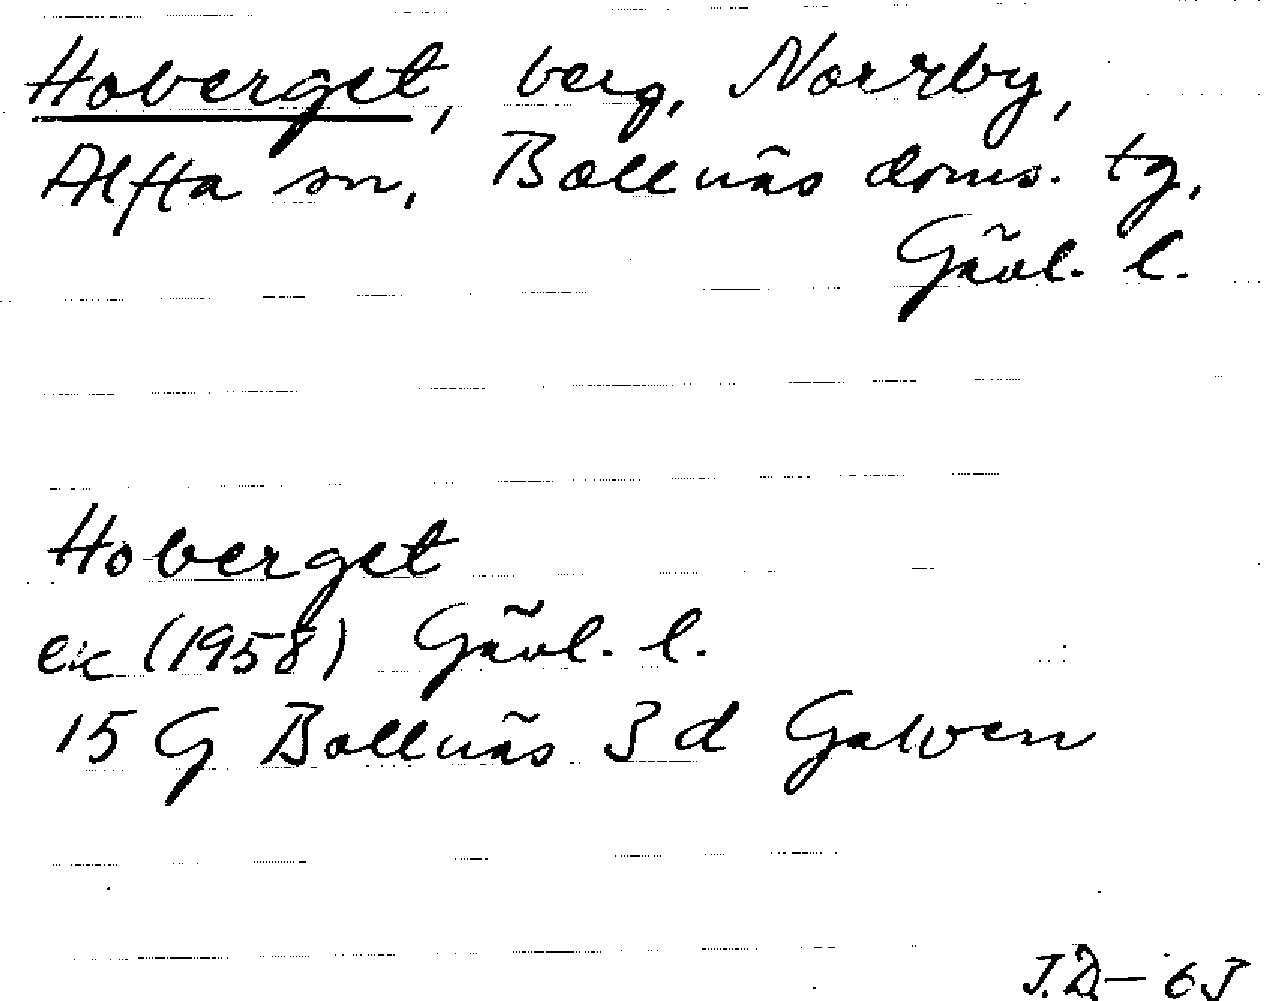 Hoberget, berg, Norrby,
Alfta sn, Bollnäs doms. tg,
Gävl. l.
Hoberget
ek (1958) Gävl. l.
15 G Bollnäs 3 d Galven
J.D-65